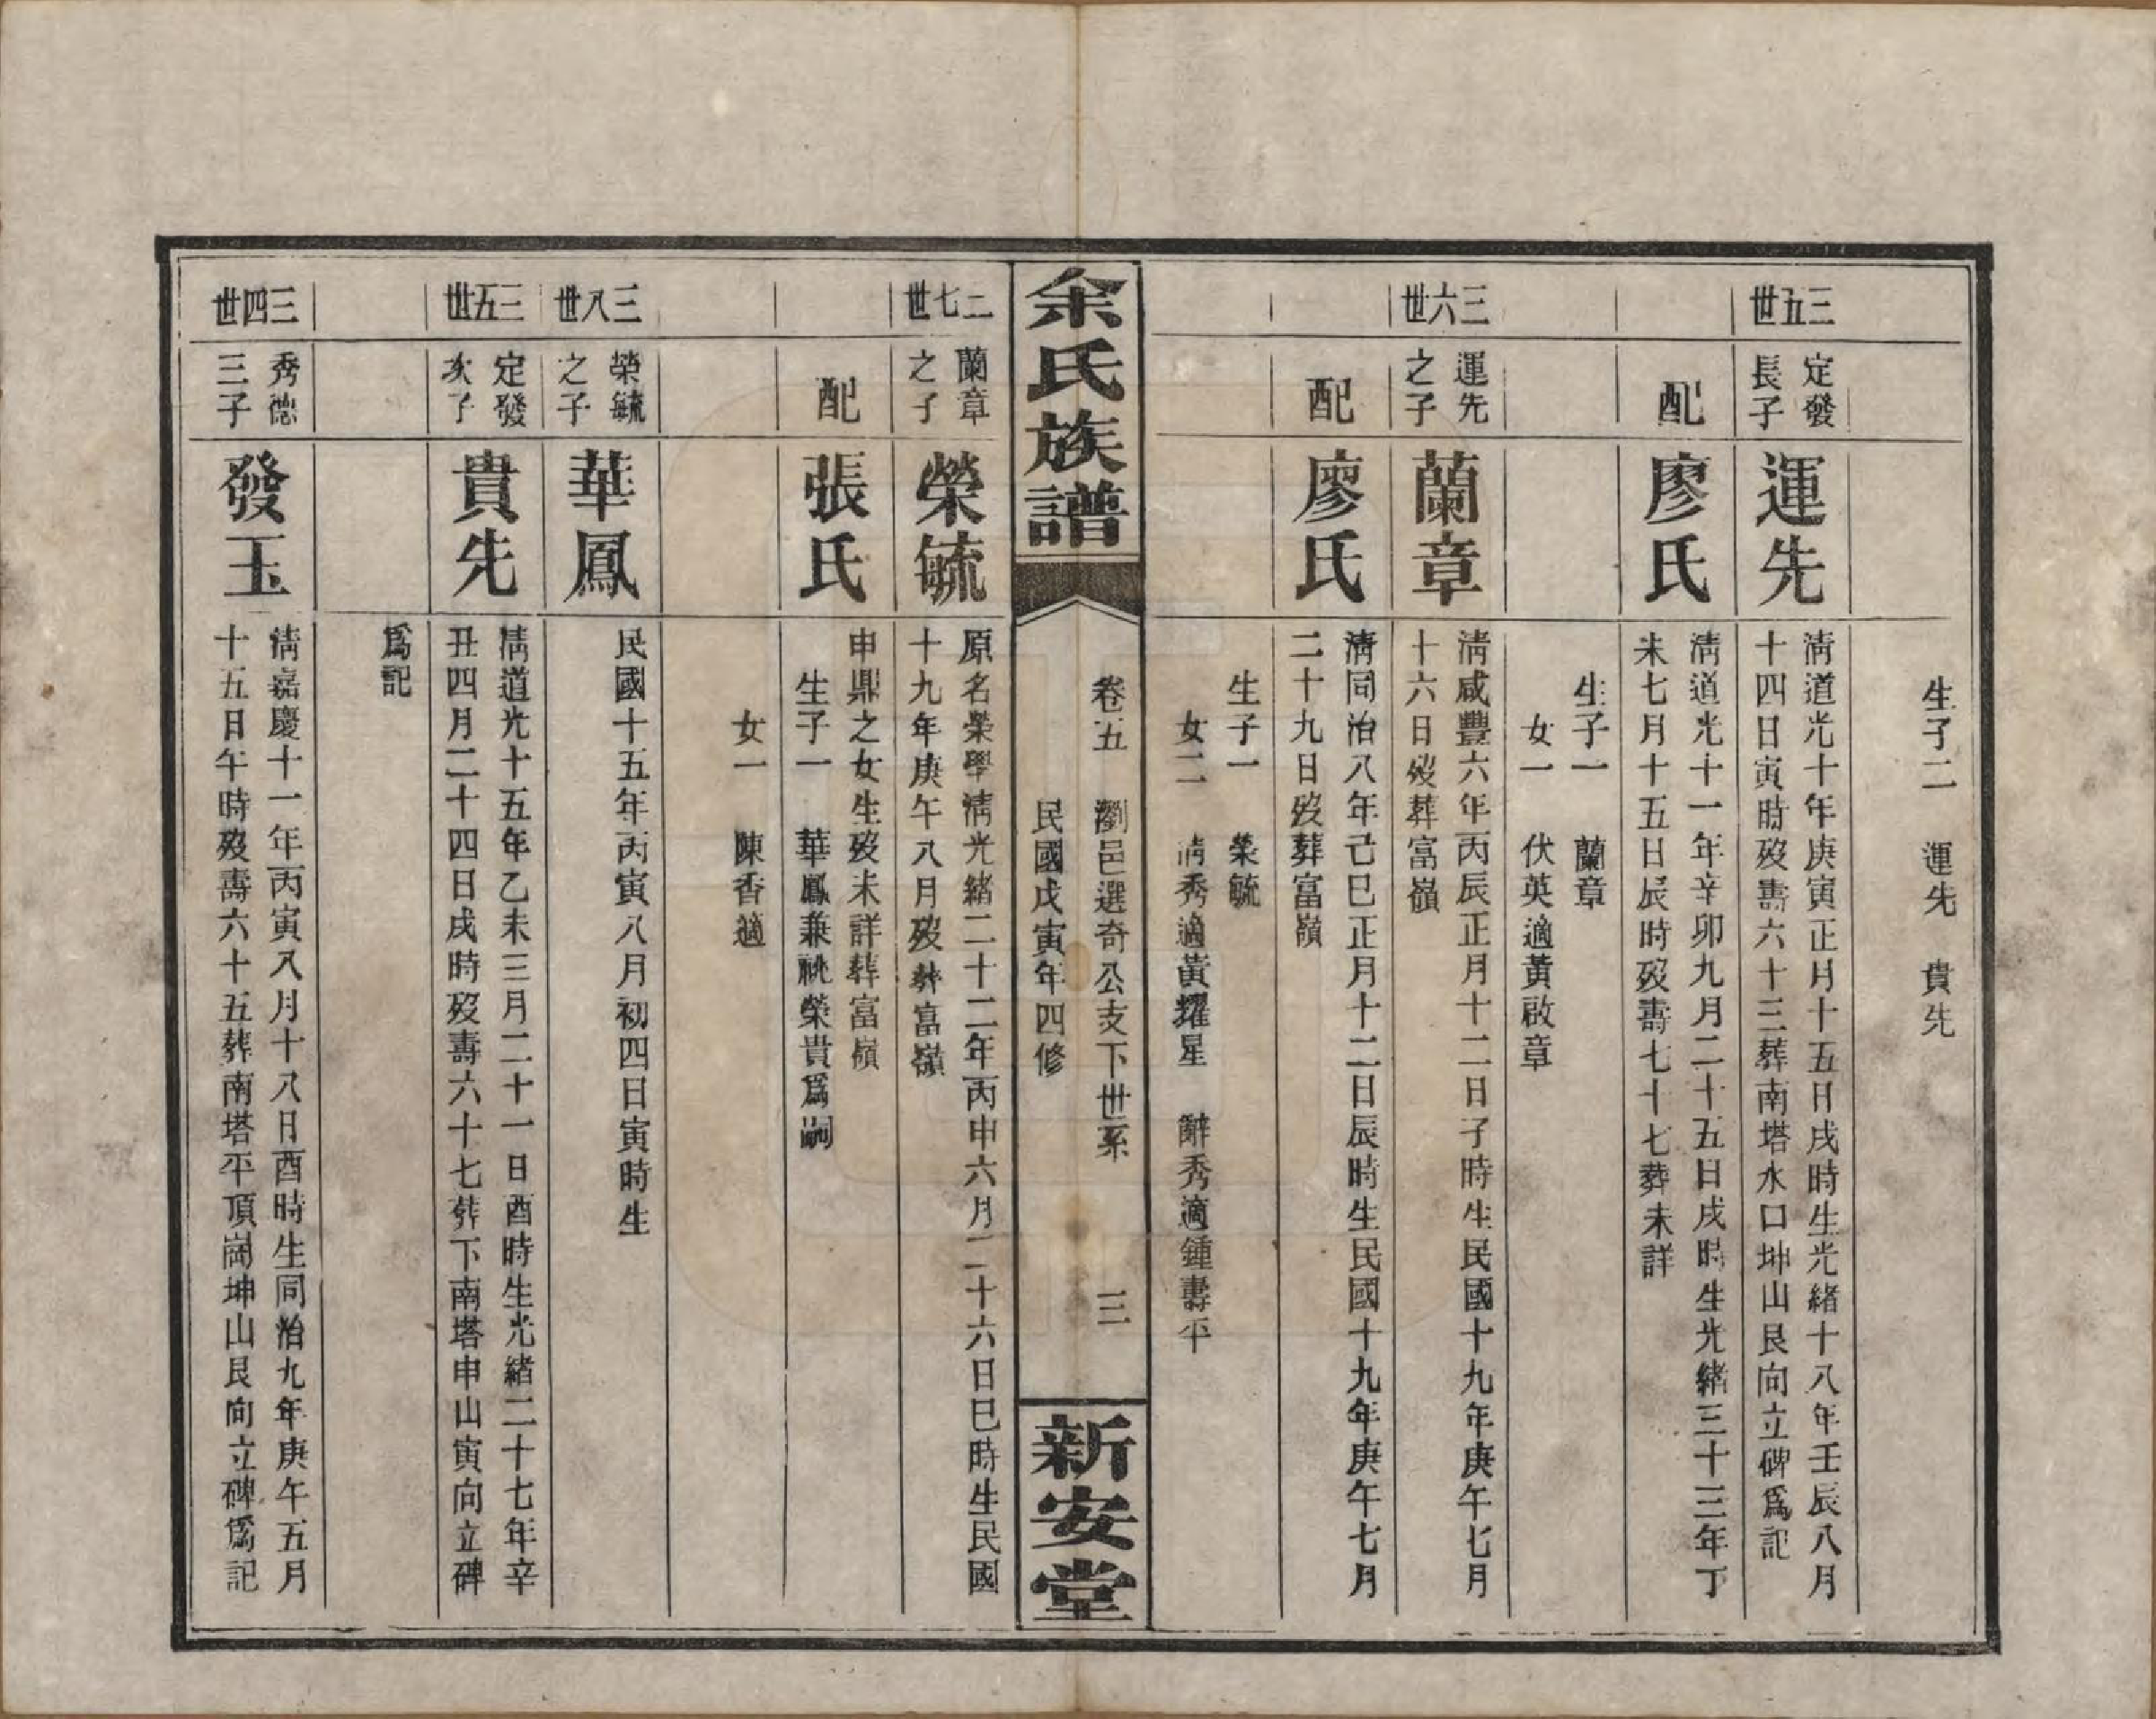 生子二　運先　貴先
三五世
定發
長子
運先
清道光十年庚寅正月十五日戌時生光緒十八年壬辰八月
十四日寅時歿壽六十三葬南塔水口坤山艮向立碑爲記
配
廖氏
清道光十一年辛卯九月二十五日戌時生光緒三十三年丁
未七月十五日辰時歿壽七十七葬未詳
生子一　蘭章
女一　伏英適黃啟章
三六世
運先
之子
蘭章
清咸豐六年丙辰正月十二日子時生民國十九年庚午七月
十六日歿葬富嶺
配
廖氏
清同治八年己巳正月十二日辰時生民國十九年庚午七月
二十九日歿葬富嶺
生子一　榮毓
女二　清秀適黃耀星　辭秀適鍾壽平
余氏族譜
卷五　瀏邑選奇公支下世系　三
民國戊寅年四修
新安堂
二七世
蘭章
之子
榮毓
原名榮學清光緒二十二年丙申六月二十六日巳時生民國
十九年庚午八月歿葬富嶺
配
張氏
申鼎之女生歿未詳葬富嶺
生子一　華鳳兼祧榮貴爲嗣
女一　陳香適
三八世
榮毓
之子
華鳳
民國十五年丙寅八月初四日寅時生
三五世
定發
次子
貴先
清道光十五年乙未三月二十一日酉時生光緒二十七年辛
丑四月二十四日戌時歿壽六十七葬下南塔申山寅向立碑
爲記
三四世
秀德
三子
發玉
清嘉慶十一年丙寅八月十八日酉時生同治九年庚午五月
十五日午時歿壽六十五葬南塔平頂崗坤山艮向立碑爲記